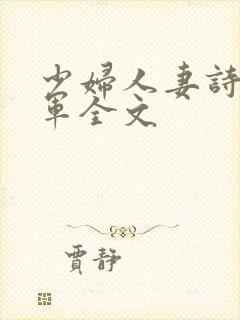 少婦人妻詩
軍全文
賈靜